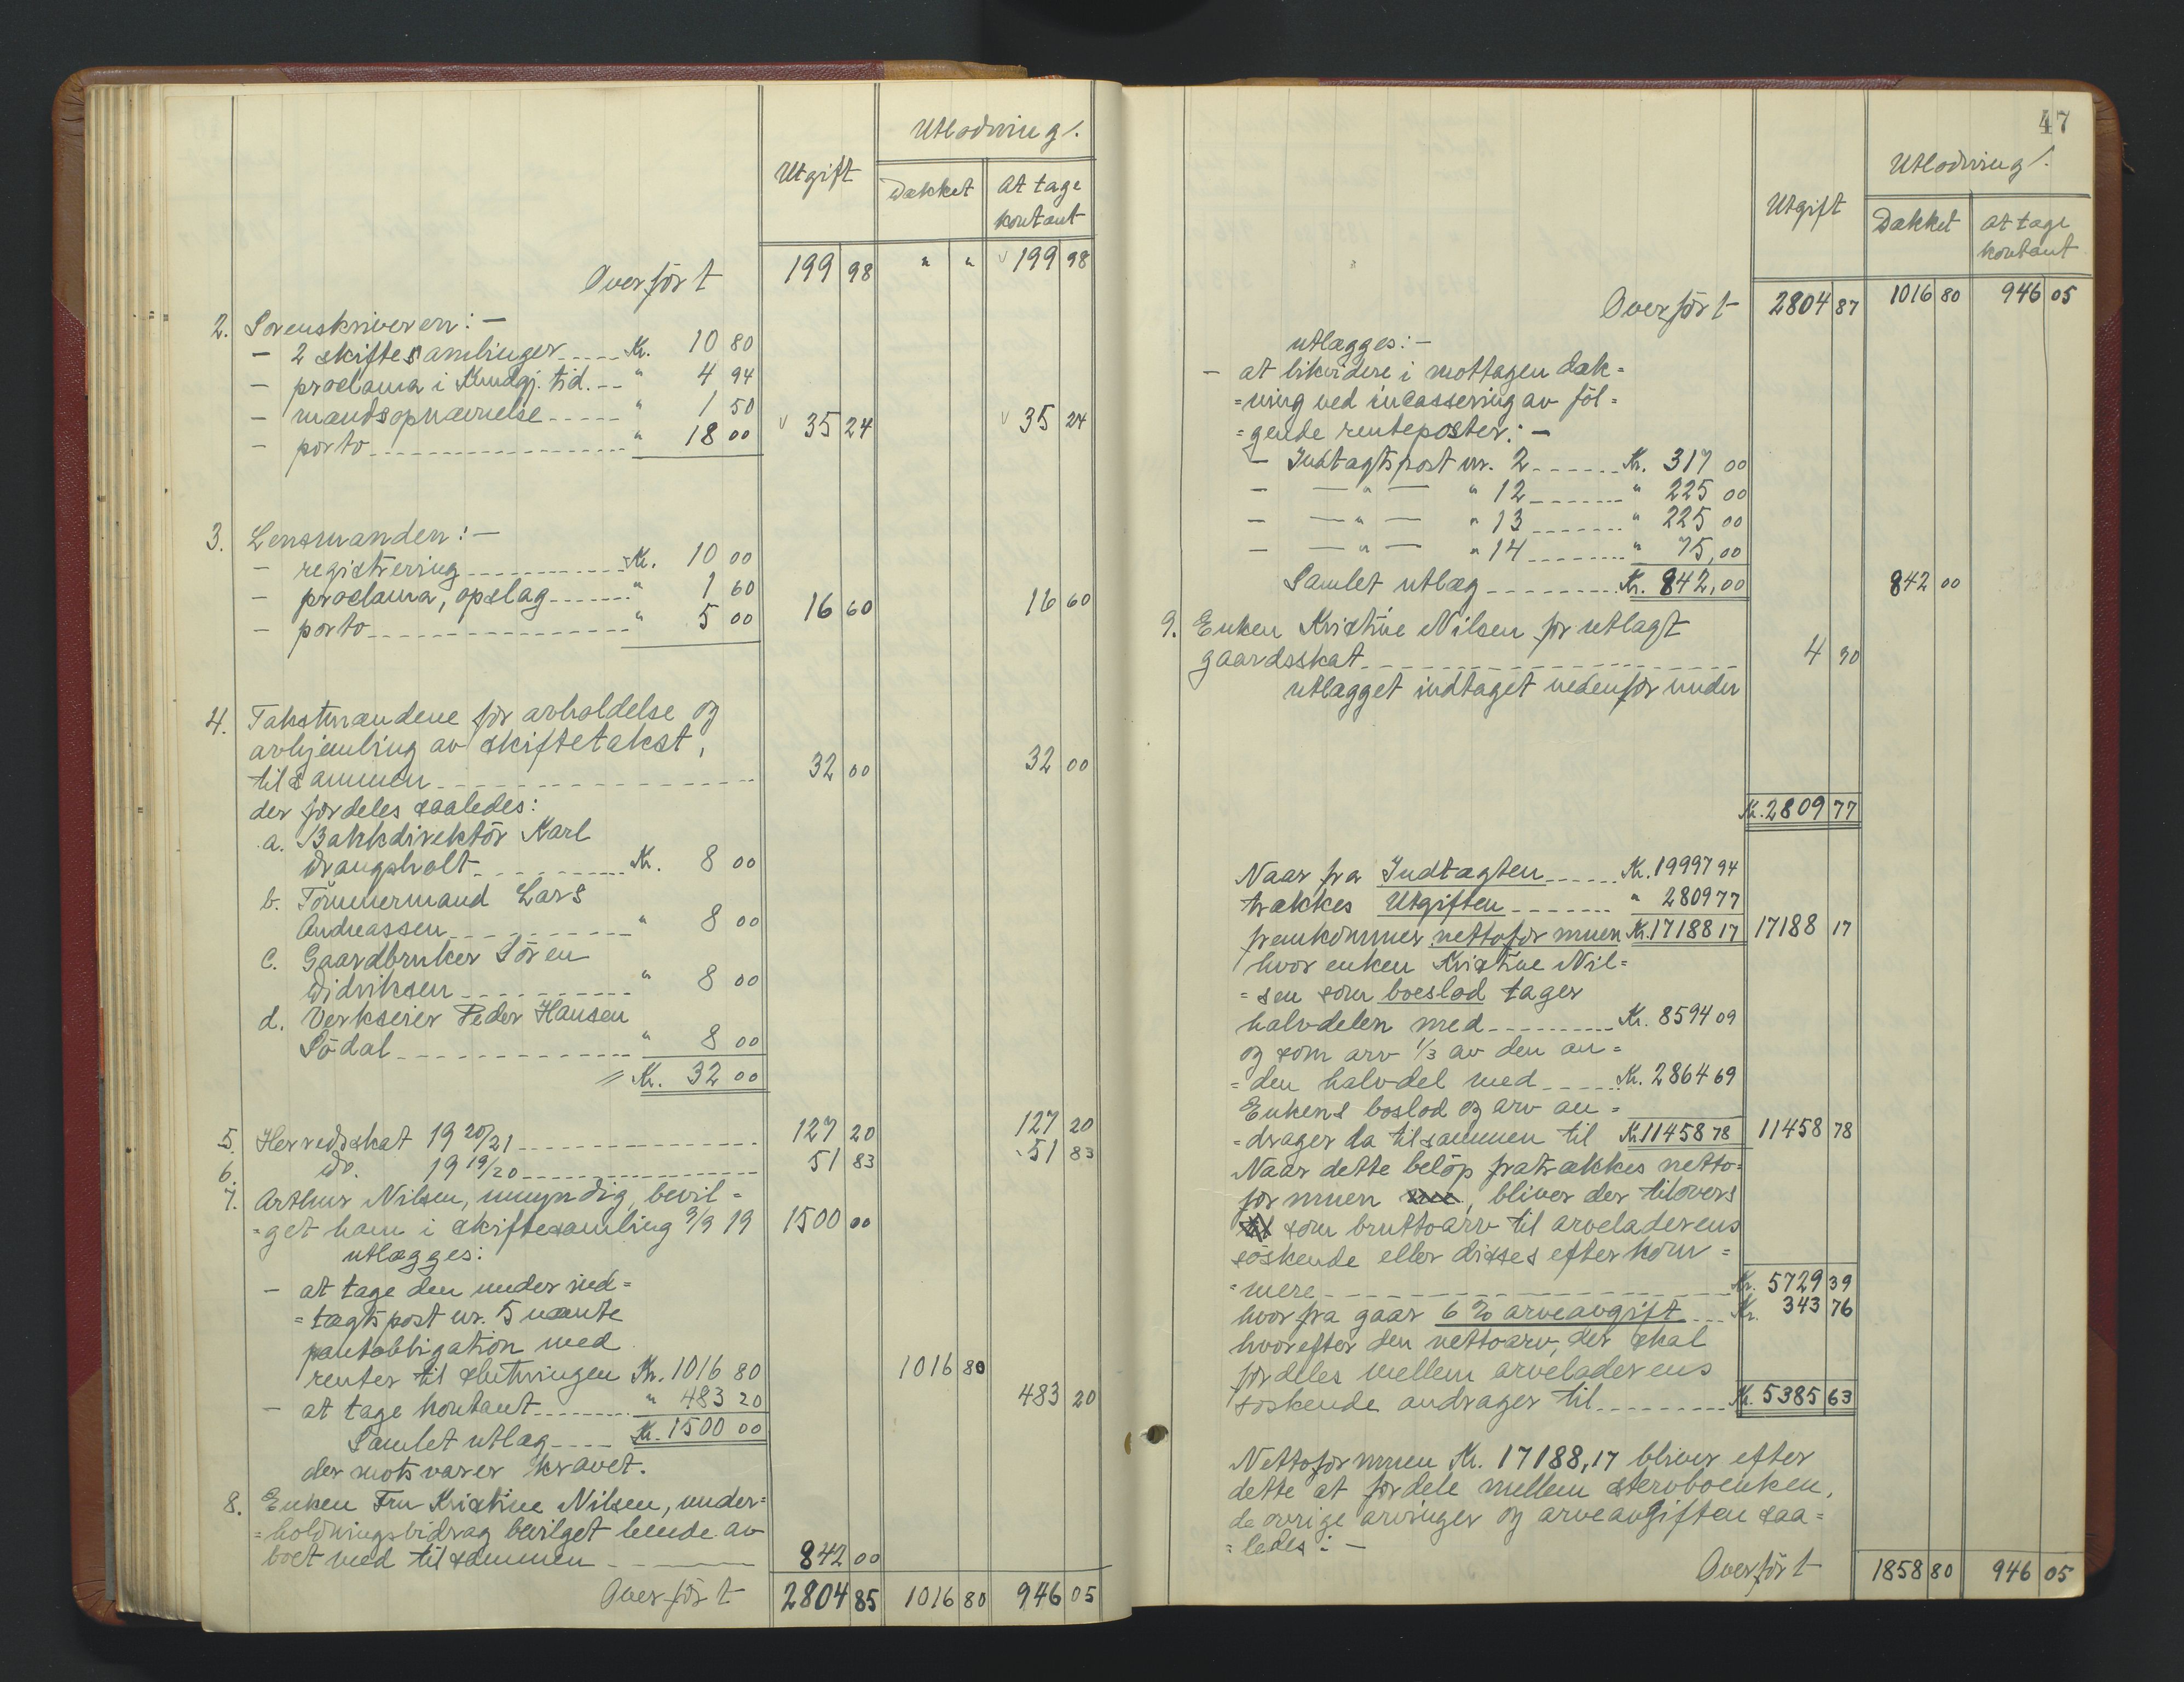 Utlodning/.
Utgift
Dækket
At tage
kontant
Overført 199 98 " " 199 98
2. Sorenskriveren: —
— 2 skiftesamlinger Kr. 10 80
— proclama i Kundgj. tid. " 4 94
— mandsopnævnelse " 1 50 35 24 35 24
— porto " 18 00
3. Lensmanden: —
— registrering Kr. 10 00
— proclama, opslag " 1 60 16 60 16 60
— porto " 5 00
4. Takstmændene for avholdelse og
avhjemling av skiftetakst,
tilsammen 32 00 32 00
der fordeles saaledes:
a. Bankdirektör Karl
Drangsholt Kr. 8 00
b. Tömmermand Lars
Andreassen " 8 00
c. Gaardbruker Sören
Didriksen " 8 00
d. Verkseier Peder Hansen
Södal " 8 00
Kr. 32 00
5. Herredsskat 19 20/21 127 20 127 20
6. Do. 19 19/20 51 83 51 83
7. Arthur Nilsen, umyndig, bevil=
=get ham i skiftesamling 9/9 19 1500 00
utlægges:
— at tage den under ind=
=tægtspost nr. 5 nævnte
pantobligation med
renter til slutningen Kr. 1016 80 1016 80
— at tage kontant " 483 20 483 20
Samlet utlæg Kr. 1500 00
der motsvarer kravet.
8. Enken Fru Kristine Nilsen, under=
=holdningsbidrag bevilget hende av
boet med tilsammen 842 00
Overfört 2804 85 1016 80 946 05
47
Utlodning/.
Utgift
Dækket
At tage
kontant
Overfört 2804 87 1016 80 946 05
utlægges: —
— at likvidere i mottagen dæk=
=ning ved incassering av föl=
=gende renteposter: —
— Indtægtspost nr. 2 Kr. 317 00
— — " — " 12 " 225 00
— — " — " 13 " 225 00
— — " — " 14 " 75,00
Samlet utlæg Kr. 842,00 842 00
9. Enken Kristine Nilsen for utlagt
gaardsskat 4 90
utlægget indtaget nedenfor under
Kr. 2809 77
Naar fra Indtægten Kr. 19997 94
trækkes Utgiften " 2809 77
fremkommer nettoformuen Kr. 17188 17 17188 17
hvor enken Kristine Nil=
=sen som boeslod tager
halvdelen med Kr. 8594 09
og som arv 1/3 av den an=
=den halvdel med Kr. 2864 69
Enkens boslod og arv an=
=drager da tilsammen til Kr. 11458 78 11458 78
Naar dette belöp fratrækkes netto=
formuen, bliver der tilovers
som bruttoarv til arveladerens
söskende eller disses efterkom=
=mere Kr. 5729 39
hvorfra gaar 6 % arveavgift Kr. 343 76
hvorefter den nettoarv, der skal
fordeles mellem arveladerens
söskende andrager til Kr. 5385 63
Nettoformuen Kr. 17188,17 bliver efter
dette at fordele mellem stervboenken,
de övrige arvinger og arveavgiften saa=
=ledes: —
Overfört 1858 80 946 05